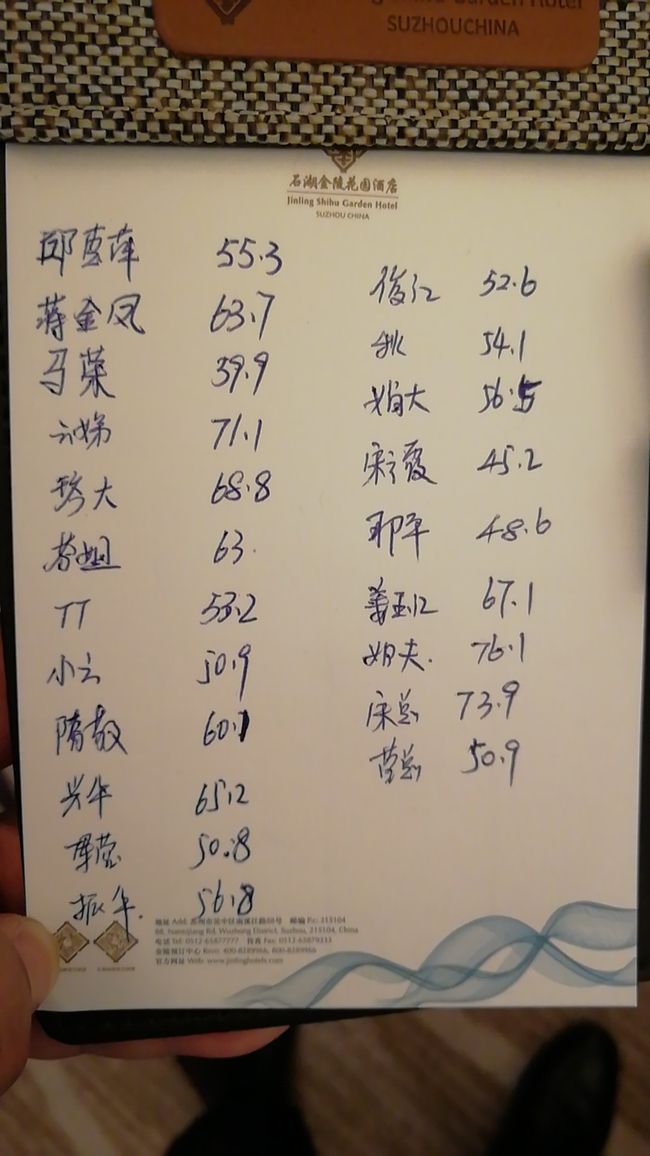 Garden Hotel
SUZHOU CHINA
石湖金陵花园酒店
Jinling Shihu Garden Hotel
SUZHOU CHINA
邱惠萍 55.3
蒋金凤 63.7
马荣 39.9
71.1
大 68.8
姐 63.
TT 53.2
小云 50.9
隋敏 60.1
兴华 65.2
50.8
振华. 56.8
俊江 52.6
秋 54.1
大 56.5
宋霞 45.2
48.6
姜玉江 67.1
姐夫. 76.1
宋总 73.9
曹总 50.9
地址 Add: 苏州市吴中区南溪江路88号 邮编 P.c: 215104
88, Nanxijiang Rd, Wuzhong District, Suzhou, 215104, China
电话 Tel: 0512-65877777 传真 Fax: 0512-65879333
金陵预订中心 Rsvn: 400-8289966, 800-8289966
官方网址 Web: www.jinlinghotels.com